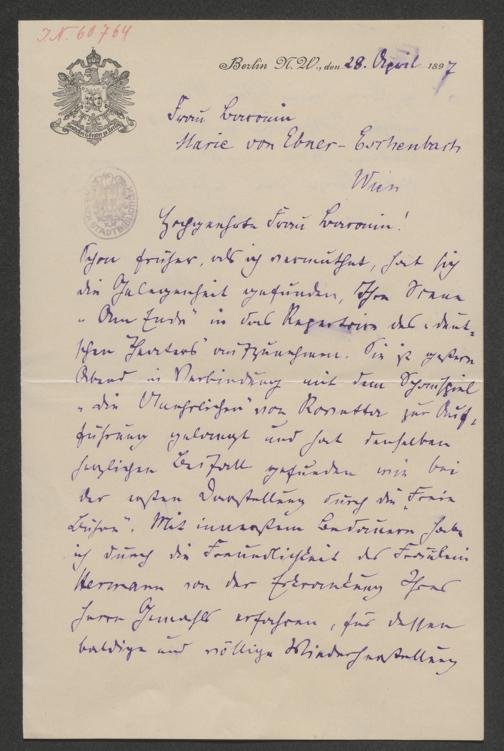 I.N. 60764
Berlin N.W., den 28. April 1897
Frau Baronin
Marie von Ebner-Eschenbach
Wien
Hochgeehrte Frau Baronin!
Schon früher, als ich vermuthet, hat sich
die Gelegenheit gefunden, Ihre Scene
„Am Ende" in das Repertoire des „deut-
schen Theaters" aufzunehmen. Sie ist gestern
Abend in Verbindung mit dem Schauspiel
„die Unehrlichen" von Rovetta zur Auf-
führung gelangt und hat denselben
herzlichen Beifall gefunden wie bei
der ersten Darstellung durch die „Freie
Bühne". Mit innerstem Bedauern habe
ich durch die Freundlichkeit des Fräulein
Hermann von der Erkrankung Ihres
Herrn Gemahls erfahren, für dessen
baldige und völlige Wiederherstellung